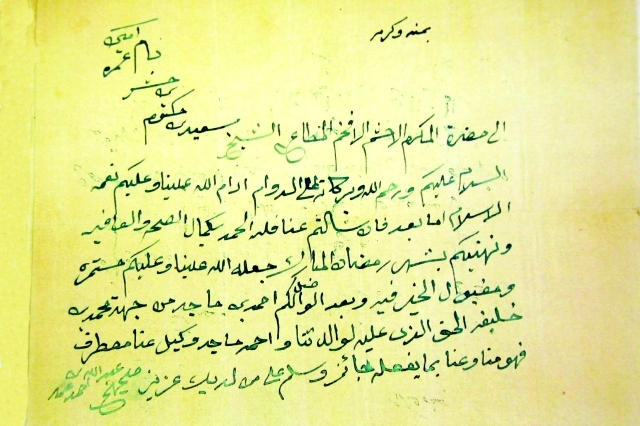 بمنه وكرمه
الى حضرة المكرم الاحشم الافخم المطاع الشيخ
سعيد بن مكتوم
بن حشر
السلام عليكم ورحمة الله وبركاته على الدوام ادام الله علينا وعليكم نعمة
الاسلام اما بعد فان سالتم عنا فلله الحمد بكمال الصحه والعافيه
ونهنيكم بشهر رمضان المبارك جعله الله علينا وعليكم مستمره
ومقبول الخير فيه وبعد الواصلكم احمد بن ماجد من جهة محمد بن
خليفه الحق الذي عليه لوالدتنا واحمد ماجد وكيل عنا مصطرف
فهو منا وعنا بما يفعله جائز وسلم على من لديك عزيز